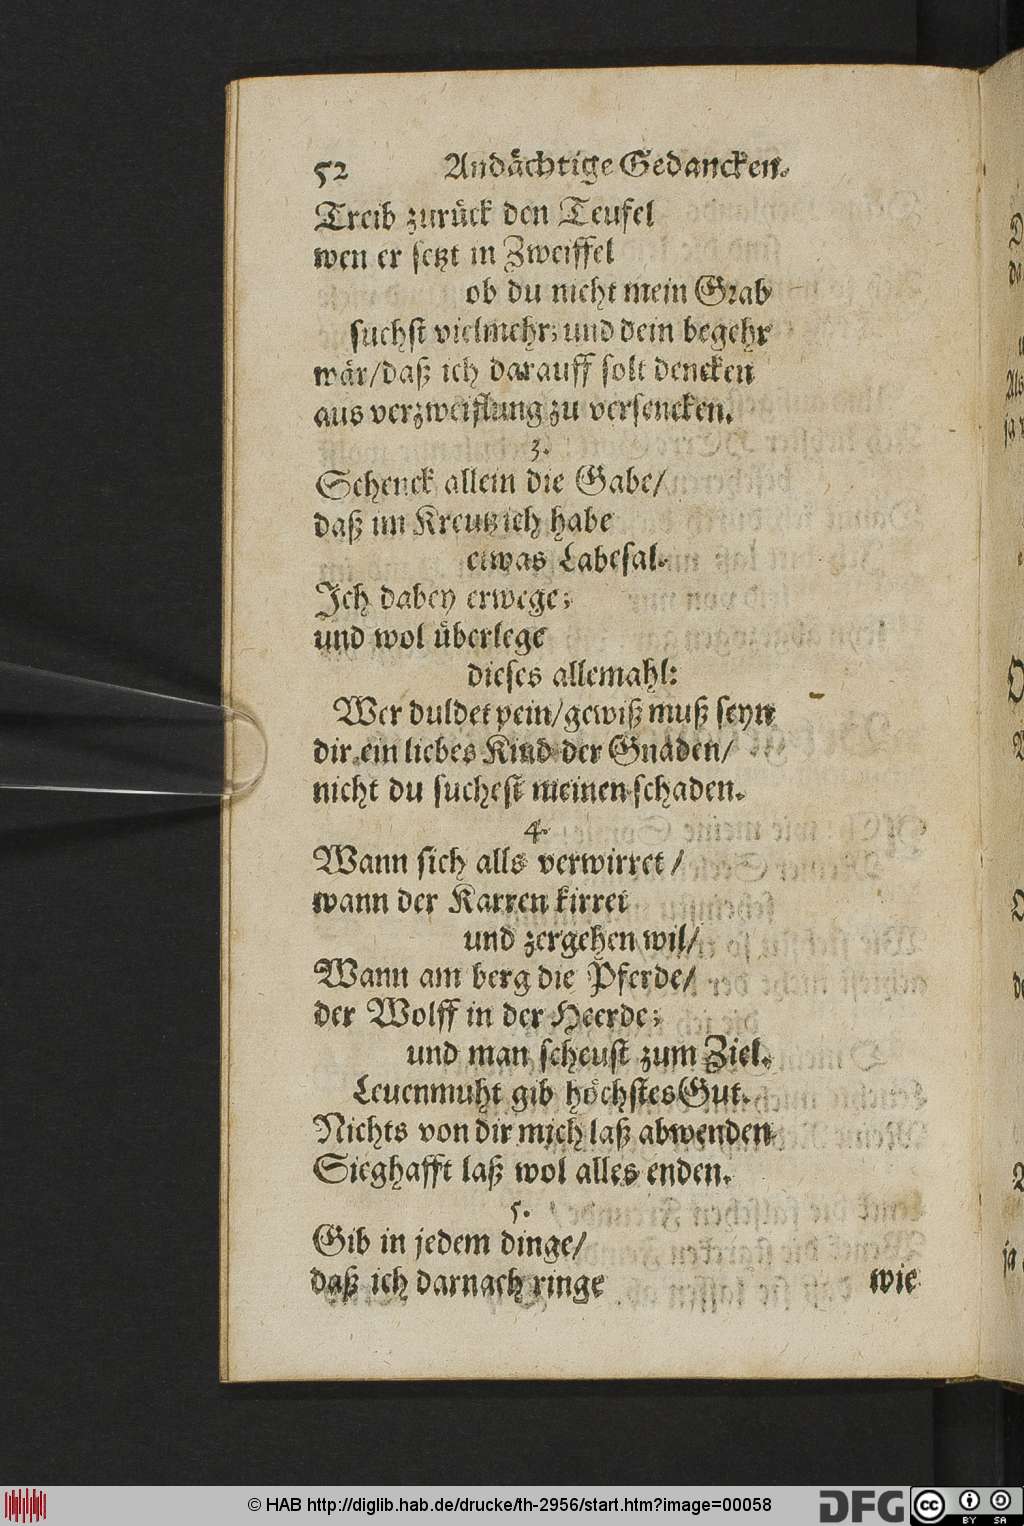 52 Andächtige Gedancken.
Treib zurück den Teufel
wen er setzt in Zweiffel
ob du nicht mein Grab
suchst vielmehr; und dein begehr
wär/daß ich darauff solt dencken
aus verzweiflung zu versencken.
3.
Schenck allein die Gabe/
daß im Kreutz ich habe
etwas Labesal.
Ich dabey erwege;
und wol überlege
dieses allemahl:
Wer duldet pein/gewiß muß seyn
dir ein liebes Kind der Gnaden/
nicht du suchest meinen schaden.
4.
Wann sich alls verwirret/
wann der Karren kirret
und zergehen wil/
Wann am berg die Pferde/
der Wolff in der Heerde;
und man scheust zum Ziel.
Leuenmuht gib höchstes Gut.
Nichts von dir mich laß abwenden
Sieghafft laß wol alles enden.
5.
Gib in jedem dinge/
daß ich darnach ringe
wie
© HAB http://diglib.hab.de/drucke/th-2956/start.htm?image=00058
DFG
cc
BY SA